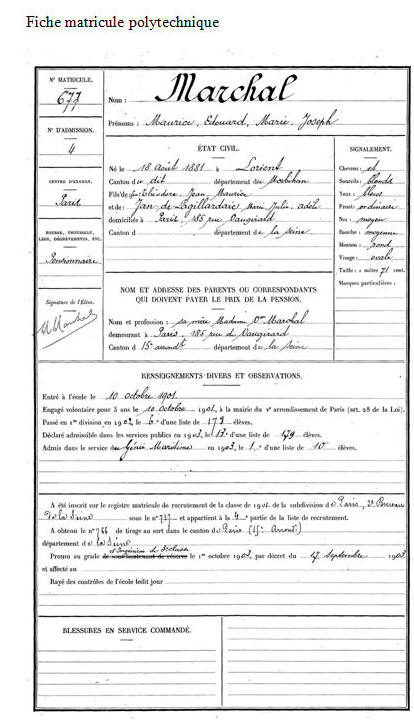 Fiche matricule polytechnique
N° MATRICULE.
677
N° D'ADMISSION.
4
CENTRE D'EXAMEN.
Paris
BOURSE, TROUSSEAU, LIEU, DÉPARTEMENTS, ETC.
Pensionnaire
Signature de l'Élève.
M Marchal
Nom : Marchal
Prénoms : Maurice, Edouard, Marie, Joseph
ÉTAT CIVIL.
Né le 18 Août 1881 à Lorient
Canton d dit département du Morbihan
Fils de Jean, Maurice
et de Jan de Lagillardaie Marie Julie
domiciliés à Paris 185 rue Vaugirard
Canton d département de la Seine
SIGNALEMENT.
Cheveux : et
Sourcils : blonds
Yeux : bleus
Front : ordinaire
Nez : moyen
Bouche : moyenne
Menton : rond
Visage : ovale
Taille : 1 mètre 71 cent.
Marques particulières :
NOM ET ADRESSE DES PARENTS OU CORRESPONDANTS
QUI DOIVENT PAYER LE PRIX DE LA PENSION.
Nom et profession : sa mère Madame Vve Marchal
demeurant à Paris 185 rue d Vaugirard
Canton d 15e arrondt département de la Seine
RENSEIGNEMENTS DIVERS ET OBSERVATIONS.
Entré à l'école le 10 octobre 1901.
Engagé volontaire pour 3 ans le 10 octobre 1901, à la mairie du Ve arrondissement de Paris (art. 28 de la Loi).
Passé en 1re division en 1902 le 6e d'une liste de 178 élèves.
Déclaré admissible dans les services publics en 1903, le 13e d'une liste de 179 élèves.
Admis dans le service du Génie Maritime en 1903, le 1er d'une liste de 10 élèves.
A été inscrit sur le registre matricule de recrutement de la classe de 1901 de la subdivision de Paris, 2e Bureau
de la Seine sous le n° 737 et appartient à la 4e partie de la liste de recrutement.
A obtenu le n° 766 de tirage au sort dans le canton de Paris (15e Arront.)
département de la Seine
d'Ingénieur de 3e classe
Promu au grade de sous-lieutenant de réserve le 1er octobre 1903, par décret du 17 Septembre 1903
et affecté au
Rayé des contrôles de l'école ledit jour
BLESSURES EN SERVICE COMMANDÉ.